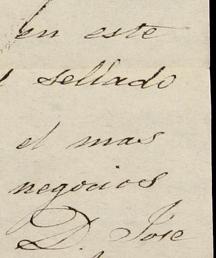 en este
sellado
el mas
negocios
D. Jose